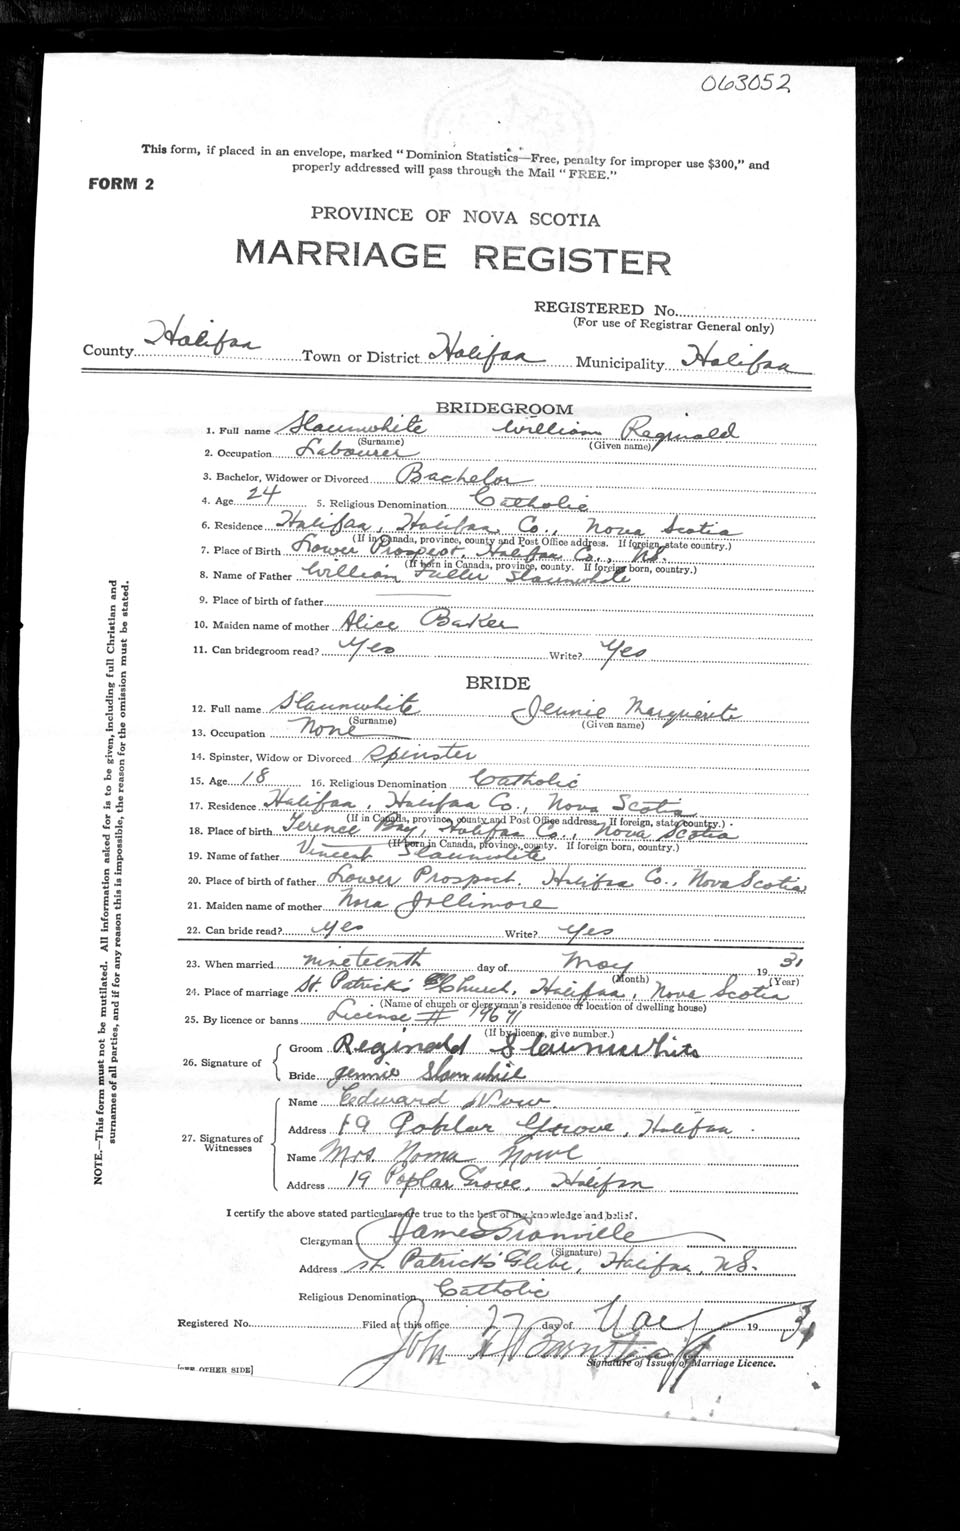 063052
This form, if placed in an envelope, marked "Dominion Statistics—Free, penalty for improper use $300," and
properly addressed will pass through the Mail "FREE."
FORM 2
PROVINCE OF NOVA SCOTIA
MARRIAGE REGISTER
REGISTERED No.
(For use of Registrar General only)
County Halifax Town or District Halifax Municipality Halifax
BRIDEGROOM
1. Full name Slaunwhite William Reginald
(Surname) (Given name)
2. Occupation Labourer
3. Bachelor, Widower or Divorced Bachelor
4. Age 24 5. Religious Denomination Catholic
6. Residence Halifax, Halifax Co., Nova Scotia
(If in Canada, province, county and Post Office address. If foreign, state country.)
7. Place of Birth Lower Prospect, Halifax Co., N.S.
(If born in Canada, province, county. If foreign born, country.)
8. Name of Father William Fuller Slaunwhite
9. Place of birth of father
10. Maiden name of mother Alice Baker
11. Can bridegroom read? Yes Write? Yes
BRIDE
12. Full name Slaunwhite Jennie Marguerite
(Surname) (Given name)
13. Occupation None
14. Spinster, Widow or Divorced Spinster
15. Age 18 16. Religious Denomination Catholic
17. Residence Halifax, Halifax Co., Nova Scotia
(If in Canada, province, county and Post Office address. If foreign, state country.)
18. Place of birth Terence Bay, Halifax Co., Nova Scotia
(If born in Canada, province, county. If foreign born, country.)
19. Name of father Vincent Slaunwhite
20. Place of birth of father Lower Prospect, Halifax Co., Nova Scotia
21. Maiden name of mother Nora Jollimore
22. Can bride read? Yes Write? Yes
23. When married nineteenth day of May 1931
(Month) (Year)
24. Place of marriage St. Patrick's Church, Halifax, Nova Scotia
(Name of church or clergyman's residence or location of dwelling house)
25. By licence or banns License #
(If by licence, give number.)
26. Signature of
Groom Reginald Slaunwhite
Bride Jennie Slaunwhite
27. Signatures of Witnesses
Name Edward
Address 19 Poplar Grove, Halifax
Name Mrs. Noma Nowe
Address 19 Poplar Grove, Halifax
I certify the above stated particulars are true to the best of my knowledge and belief.
Clergyman James
(Signature)
Address St. Patrick's Glebe, Halifax, N.S.
Religious Denomination Catholic
Registered No. Filed at this office 27 day of May 1931
John
Signature of Issuer of Marriage Licence.
OTHER SIDE]
NOTE.—This form must not be mutilated. All information asked for is to be given, including full Christian and
surnames of all parties, and if for any reason this is impossible, the reason for the omission must be stated.